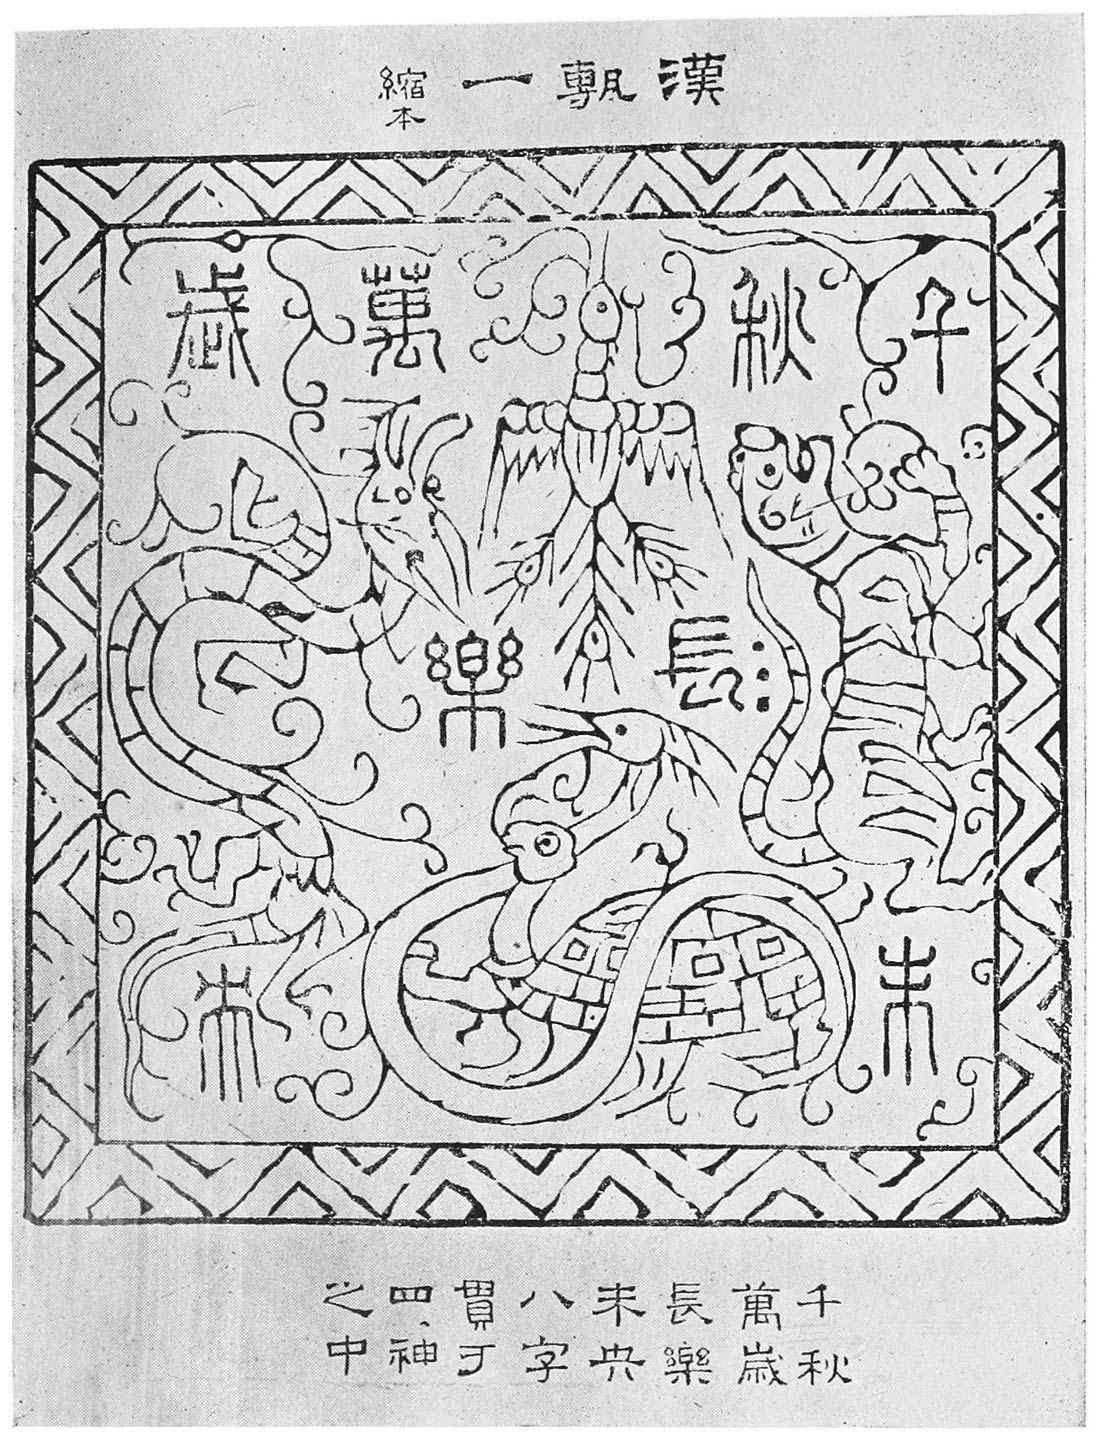 漢甎一
縮本
千秋萬歲
長樂
未央
千秋
萬歲
長樂
未央
八字
貫于
四神
之中